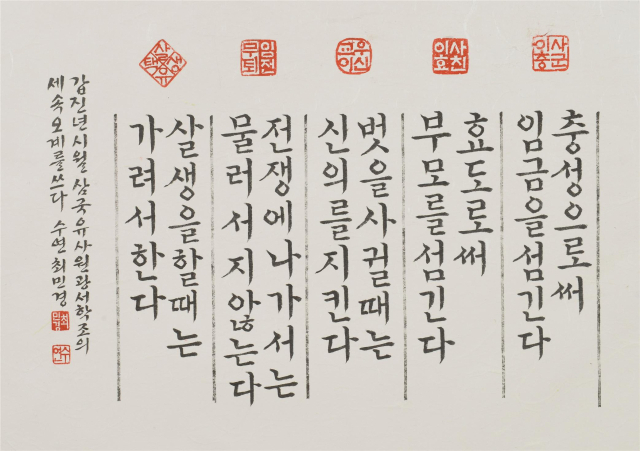 사군이충
충성으로써
임금을섬긴다
사친이효
효도로써
부모를섬긴다
교우이신
벗을사귈때는
신의를지킨다
임전무퇴
전쟁에나가서는
물러서지않는다
살생유택
살생을할때는
가려서한다
갑진년시월삼국유사원광서학조의
세속오계를쓰다 수연최민경
수연